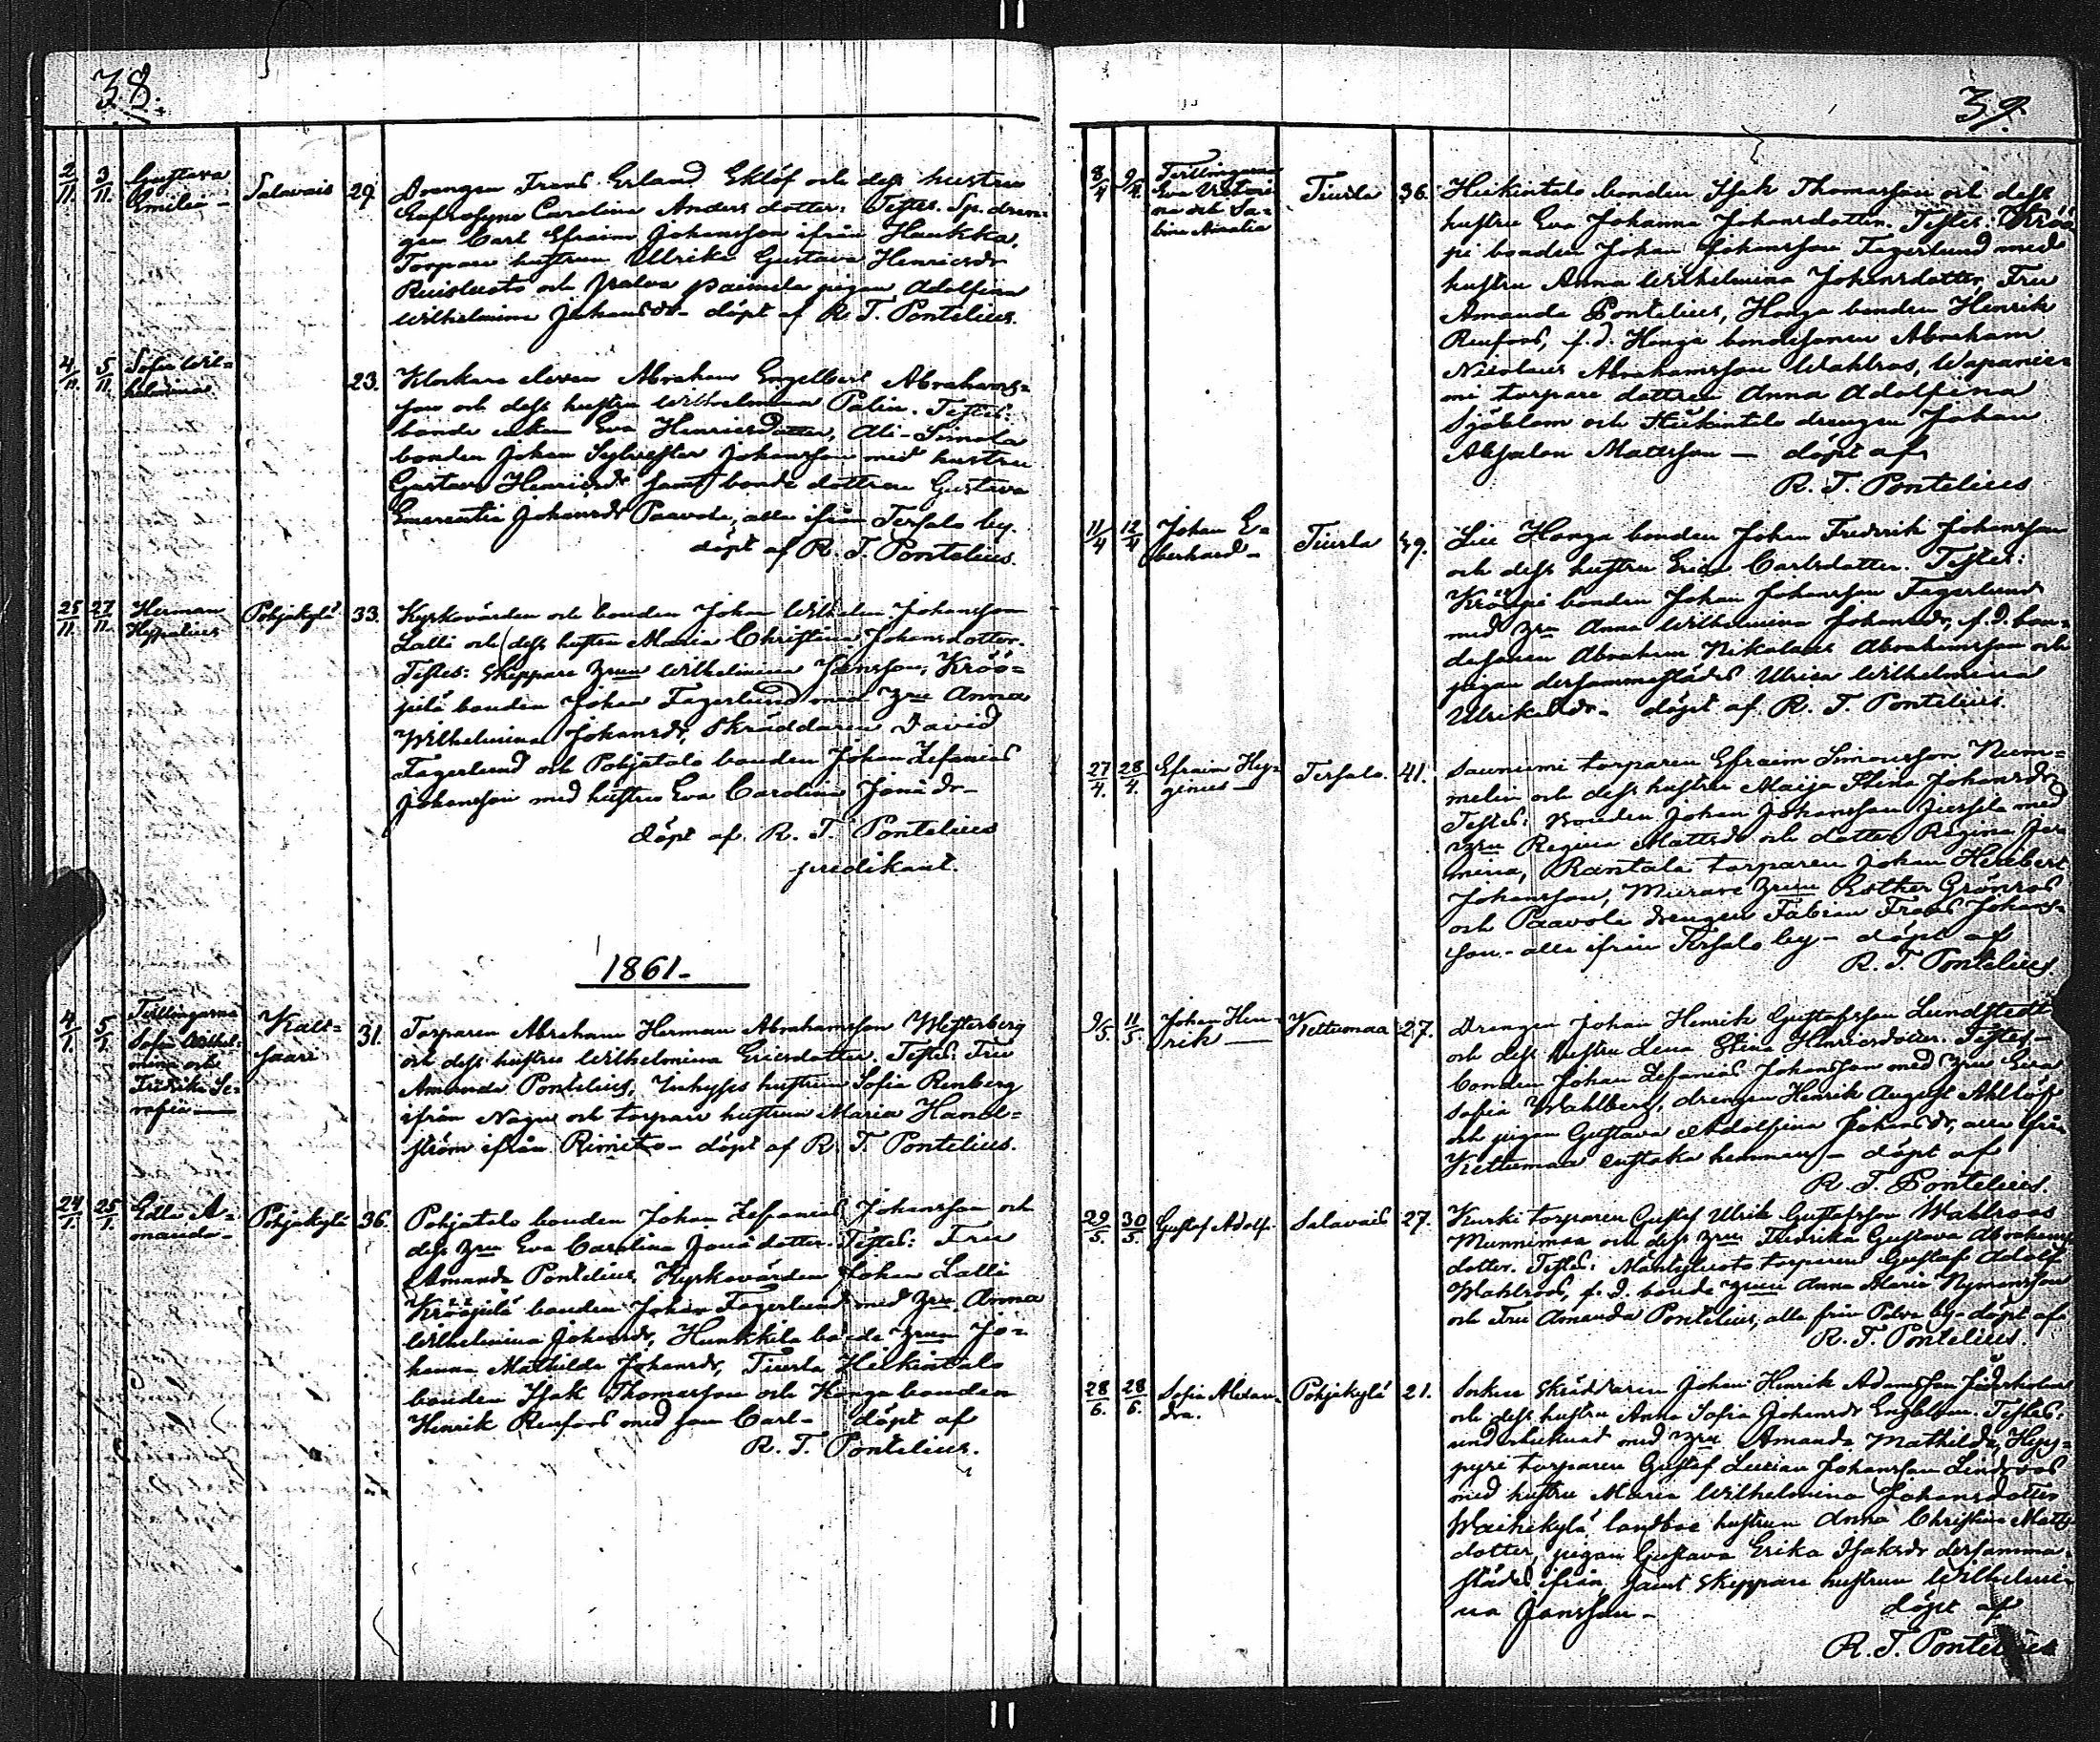 38.
2/11. 3/11. Gustava Emilia - Salavais 29. Drengen Frans Erland Eklöf och dess hustru
Eufrosyne Carolina Anders dotter. Testes. Sp. dren-
gen Carl Efraim Johansson ifrån Haukka,
Torpare hustrun Ulrika Gustava Henricsdr
Ruisluoto och Palva Paimela pigan Adolfina
Wilhelmina Johansdr - döpt af R. T. Pontelius.
4/11. 5/11. Sofia Wil-
helmina 23. Klockare eleven Abraham Engelbert Abrahams-
son och dess hustru Wilhelmina Palin. Testes:
bonde enkan Eva Henricsdotter, Ali-Simola
bonden Johan Sylvester Johansson med hustru
Gustava Henricsdr samt bonde dottren Gustava
Emerentia Johansdr Paavola, alla ifrån Tersalo by.
döpt af R. T. Pontelius.
25/11. 27/11. Herman
Hyppolius Pohjakylä 33. Kyrkovärden och bonden Johan Wilhelm Johansson
Lalli och dess hustru Maria Christina Johansdotter.
Testes: Skeppare hrun Wilhelmina Jansson, Kröö-
pilä bonden Johan Fagerlund med hru Anna
Wilhelmina Johansdr, Skräddaren David
Fagerlund och Pohjatalo bonden Johan Zefanias
Johansson med hustru Eva Carolina Jonädr -
döpt af. R. T. Pontelius
predikant.
1861-
4/1. 5/1. Tvillingarna
Sofia Wilhel-
mina och
Fredrika Se-
rafia Kalt-
saari 31. Torparen Abraham Herman Abrahamsson Westerberg
och dess hustru Wilhelmina Ericsdotter. Testes: Fru
Amanda Pontelius, Inhyses hustrun Sofia Renberg
ifrån Nagu och torpare hustrun Maria Hand-
ström ifrån Rimito - döpt af R. T. Pontelius.
24/1. 25/1. Edla A-
manda - Pohjakylä 36. Pohjatalo bonden Johan Zefanias Johansson och
dess hru Eva Carolina Jonä dotter. Testes: Fru
Amanda Pontelius, Kyrkovärden Johan Lalli
Krööpilä bonden Johan Fagerlund med hru Anna
Wilhelmina Johansdr, Hunkkila bonde hrun Jo-
hanna Mathilda Johansdr, Tiurla Heikintalo
bonden Isak Thomasson och Honga bonden
Henrik Renfors med son Carl - döpt af
R. T. Pontelius.
39.
8/4 9/4. Tvillingarna
Eva Victori-
na och Sa-
bina Amalia Tiurla 36. Heikintalo bonden Isak Thomasson och dess
hustru Eva Johanna Johansdotter. Testes: Kröö-
pi bonden Johan Johansson Fagerlund med
hustru Anna Wilhelmina Johansdotter, Fru
Amanda Pontelius, Honga bonden Henrik
Renfors, f.d. Honga bondesonen Abraham
Nicolaus Abrahamsson Wahlros, Wapanie-
mi torpare dottren Anna Adolfina
Sjöblom och Heikintalo drengen Johan
Absalon Matsson - döpt af
R. T. Pontelius
11/4 12/4 Johan E-
berhard - Tiurla 39. Lill Honga bonden Johan Fredrik Johansson
och dess hustru Erica Carlsdotter. Testes:
Krööpi bonden Johan Johansson Fagerlund
med hru Anna Wilhelmina Johansdr, f.d. bon-
desonen Abraham Nikolaus Abrahamsson och
pigan dersammastädes Ulrica Wilhelmina
Ulriksdr. döpt af R. T. Pontelius.
27/4. 28/4. Efraim Hy-
ginus - Tersalo. 41. Sauniemi torparen Efraim Simonsson Num-
melin och dess hustru Maija Stina Johansdr
Testes: Bonden Johan Johansson Jussila med
hru Regina Mattsdr och dotter Regina Jer-
mina, Rantala torparen Johan Heribert
Johansson, Murare hrun Esther Grönros
och Paavola drengen Fabian Frans Johans-
son - alla ifrån Tersalo by - döpt af
R. T. Pontelius
9/5. 11/5. Johan Hen-
rik Kettumaa 27. Drengen Johan Henrik Gustafsson Lundstedt
och dess hustru Lena Stina Henricsdotter. Testes -
bonden Johan Zefanias Johansson med hru Eva
Sofia Wahlberg, drengen Henrik August Ahllöf
och pigan Gustava Adolfina Johansdr, alla ifrån
Kettumaa enstaka hemman - döpt af
R. T. Pontelius.
29/5. 30/5. Gustaf Adolf. Salavais 27. Kurki torparen Gustaf Ulrik Gustafsson Wahlroos
Munnimaa och dess hru Fredrika Gustava Abrahams
dotter. Testes: Mäntyluoto torparen Gustaf Adolf
Wahlros, f.d. bonde hrun Anna Maria Nymansson
och Fru Amanda Pontelius, alla från Palva by - döpt af
R. T. Pontelius
28/6. 28/6. Sofia Alexan-
dra. Pohjakylä 21. Socken skräddaren Johan Henrik Adamsson Söderholm
och dess hustru Anna Sofia Johansdr Engblom. Testes:
undertecknad med hru Amanda Mathilda, Hyy-
pyri torparen Gustaf Lucian Johansson Lindroos
med hustru Maria Wilhelmina Johansdotter
Waihekylä landboe hustrun Anna Christina Matts
dotter, pigan Gustava Erika Isaksdr dersamma-
städes ifrån, samt skeppare hustrun Wilhelmi-
na Jansson - döpt af
R. T. Pontelius